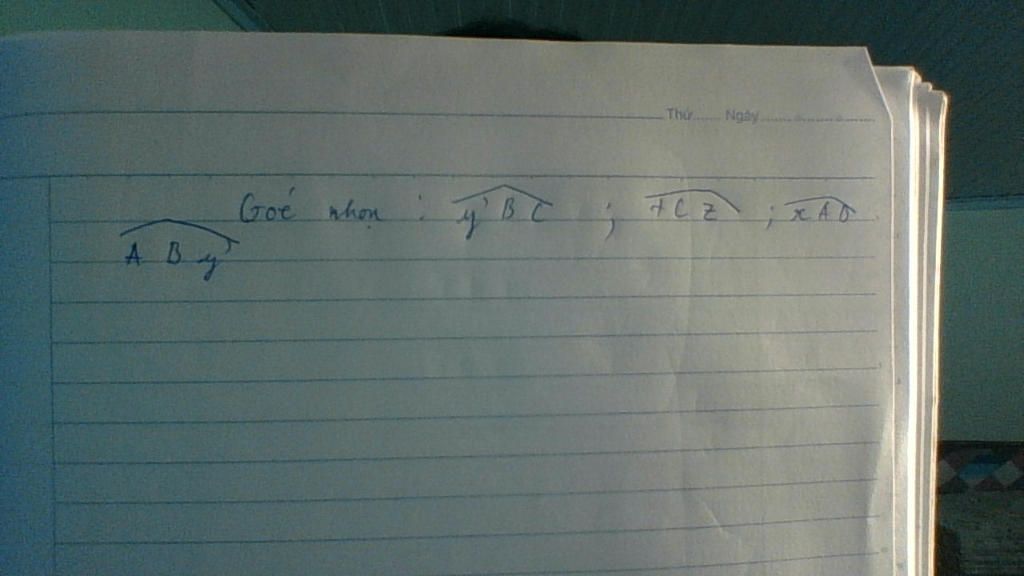 Thứ...... Ngày....................
Goć nhọn : y'BC ; tCz ; xAD
ABy'